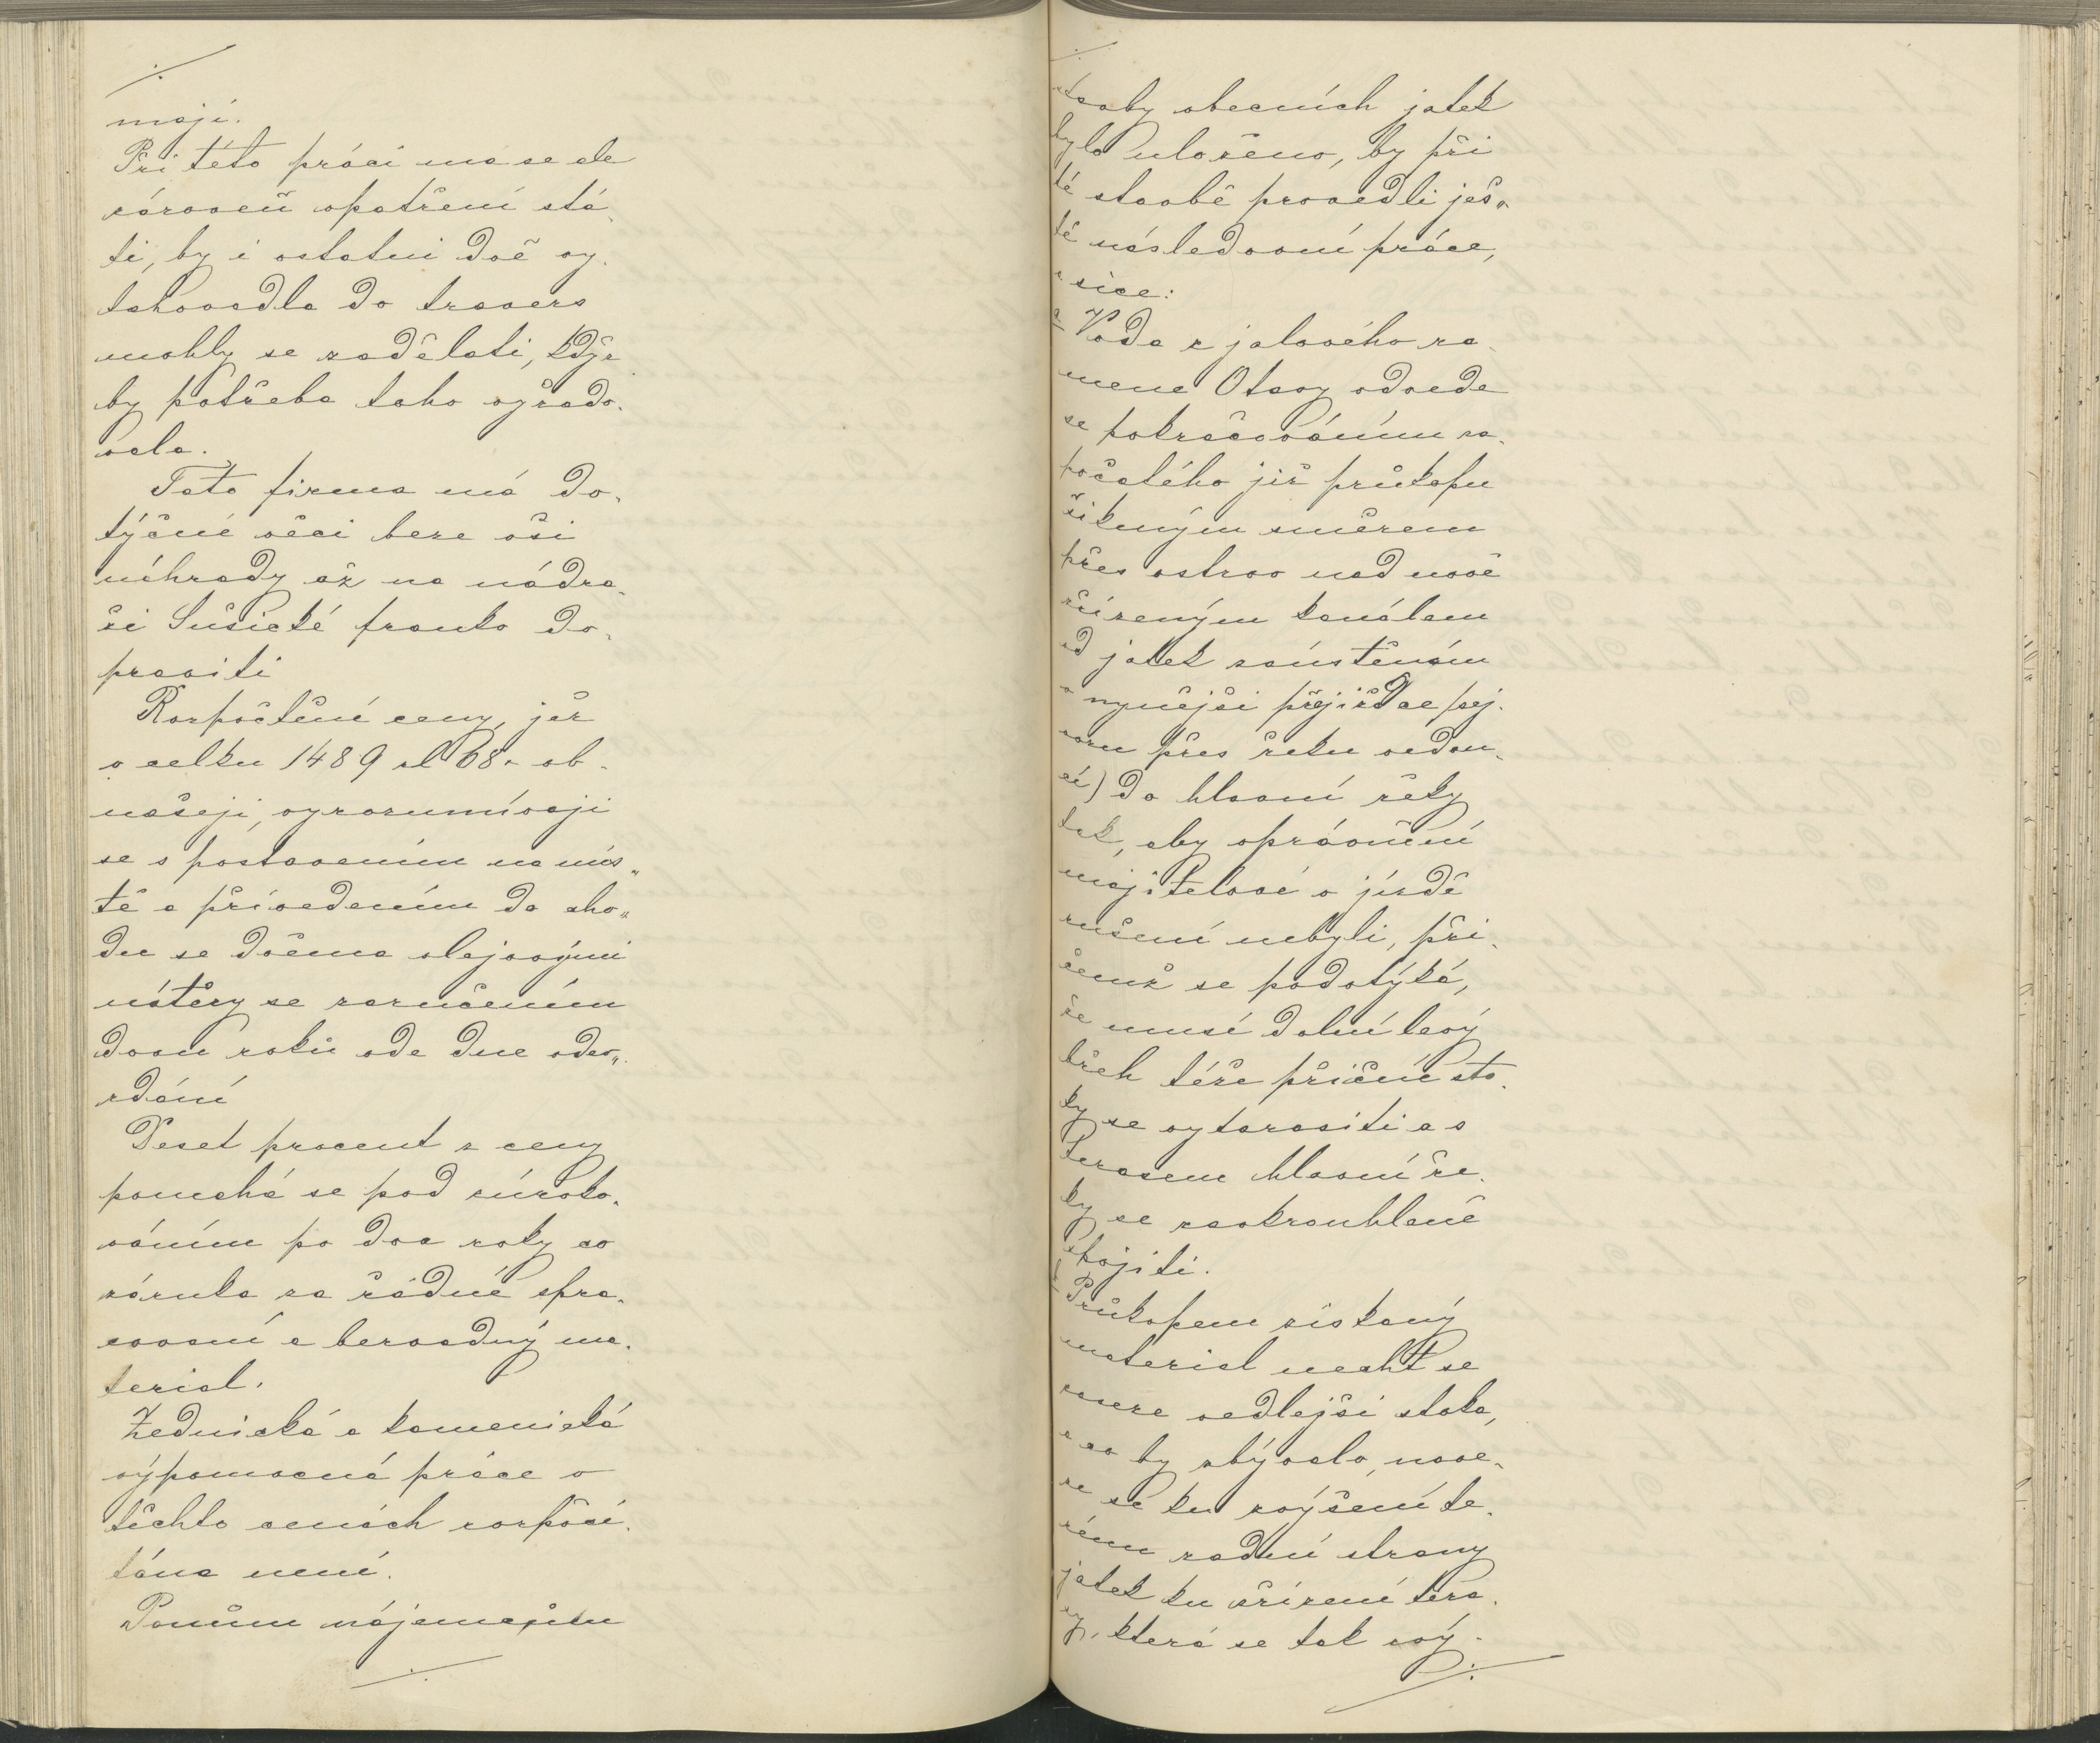 ./.
mají.
Při této práci má se ale
zároveň opatření stá-
ti, by i ostatní dvě vy-
tahovadla do travers
mohly se zadělati, když
by potřeba toho vyžado-
vala.
Tato firma má do-
týčné věci beze vší
náhrady až na nádra-
ží Sušické franko do-
praviti
Rozpočtěné ceny, jež
v celku 1489 zl 68 ob-
nášejí, vyrozumívají
se s postavením na mís-
tě a přivedením do cho-
du se dvěma olejovými
nátěry se zaručením
dvou roků ode dne odev-
zdání
Deset procent z ceny
ponechá se pod zúroko-
váním po dva roky co
záruka za řádné spra-
cování a bezvadný ma-
terial.
Zednická a kamenická
výpomocná práce v
těchto cenách rozpočí-
tána není.
Panům nájemcům
./.
./.
stavby obecních jatek
bylo uloženo, by při
té stavbě provedli ješ-
tě následovní práce,
a sice:
a Voda z jalového ra-
mene Otavy odvede
se pokračováním za-
počatého již průkopu
šikmým směrem
přes ostrov nad nově
zřízeným kanálem
od jatek zaústěném
v nynější přejížďce (vej-
vozu přes řeku vedou-
cí) do hlavní řeky
tak, aby oprávnění
majitelové v jízdě
rušeni nebyli, při-
čemž se podotýká,
že musí dolní levý
břeh téže příčné sto-
ky se vytarasiti a s
terasem hlavní ře-
ky se zaokrouhleně
spojiti.
Průkopem získaný
material nechť se
zaveze vedlejší stoka,
a co by zbývalo, nave-
ze se ku zvýšení te-
rénu zadní strany
jatek ku zřízení tera-
sy, která se tak vý-
./.